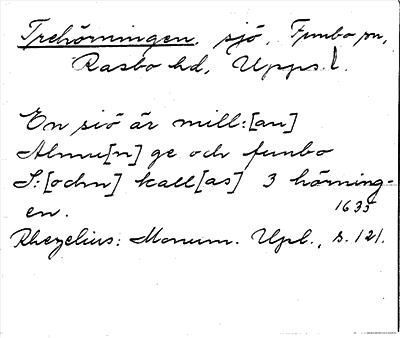 Trehörningen, sjö, Funbo sn,
Rasbo hd, Upps. l.
En siö är mill:[an]
Almu[n]ge och funbo
S:[ochn] kall[as] 3 hörning-
en. 1635
Rhezelius: Monum. Upl., s. 121.